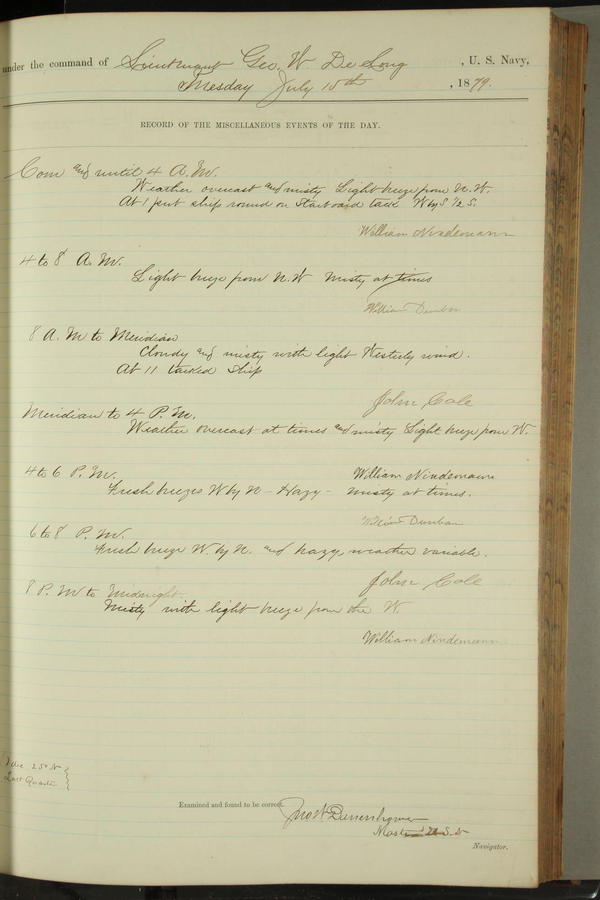 under the command of Lieutenant Geo. W. De Long, U. S. Navy,
Tuesday July 15th, 1879.
RECORD OF THE MISCELLANEOUS EVENTS OF THE DAY.
Com and until 4 A.M.
Weather overcast and misty Light breeze from N.W.
At 1 put ship round on Starboard tack W by S 1/2 S.
William Nindemann
4 to 8 A.M.
Light breeze from N.W misty at times
William Dunbar
8 A.M to Meridian
Cloudy and misty with light Westerly wind.
At 11 tacked ship
John Cole
Meridian to 4 P.M.
Weather overcast at times and misty Light breeze from W.
William Nindemann
4 to 6 P.M.
Fresh breezes W by N - Hazy - misty at times.
William Dunbar
6 to 8 P.M.
Fresh breeze W. by N. and hazy, weather variable.
John Cole
8 P.M to Midnight.
Misty with light breeze from the W.
William Nindemann
25° N
Last Quarter
Examined and found to be correct.
Jno W Danenhower
Master U.S.N
Navigator.